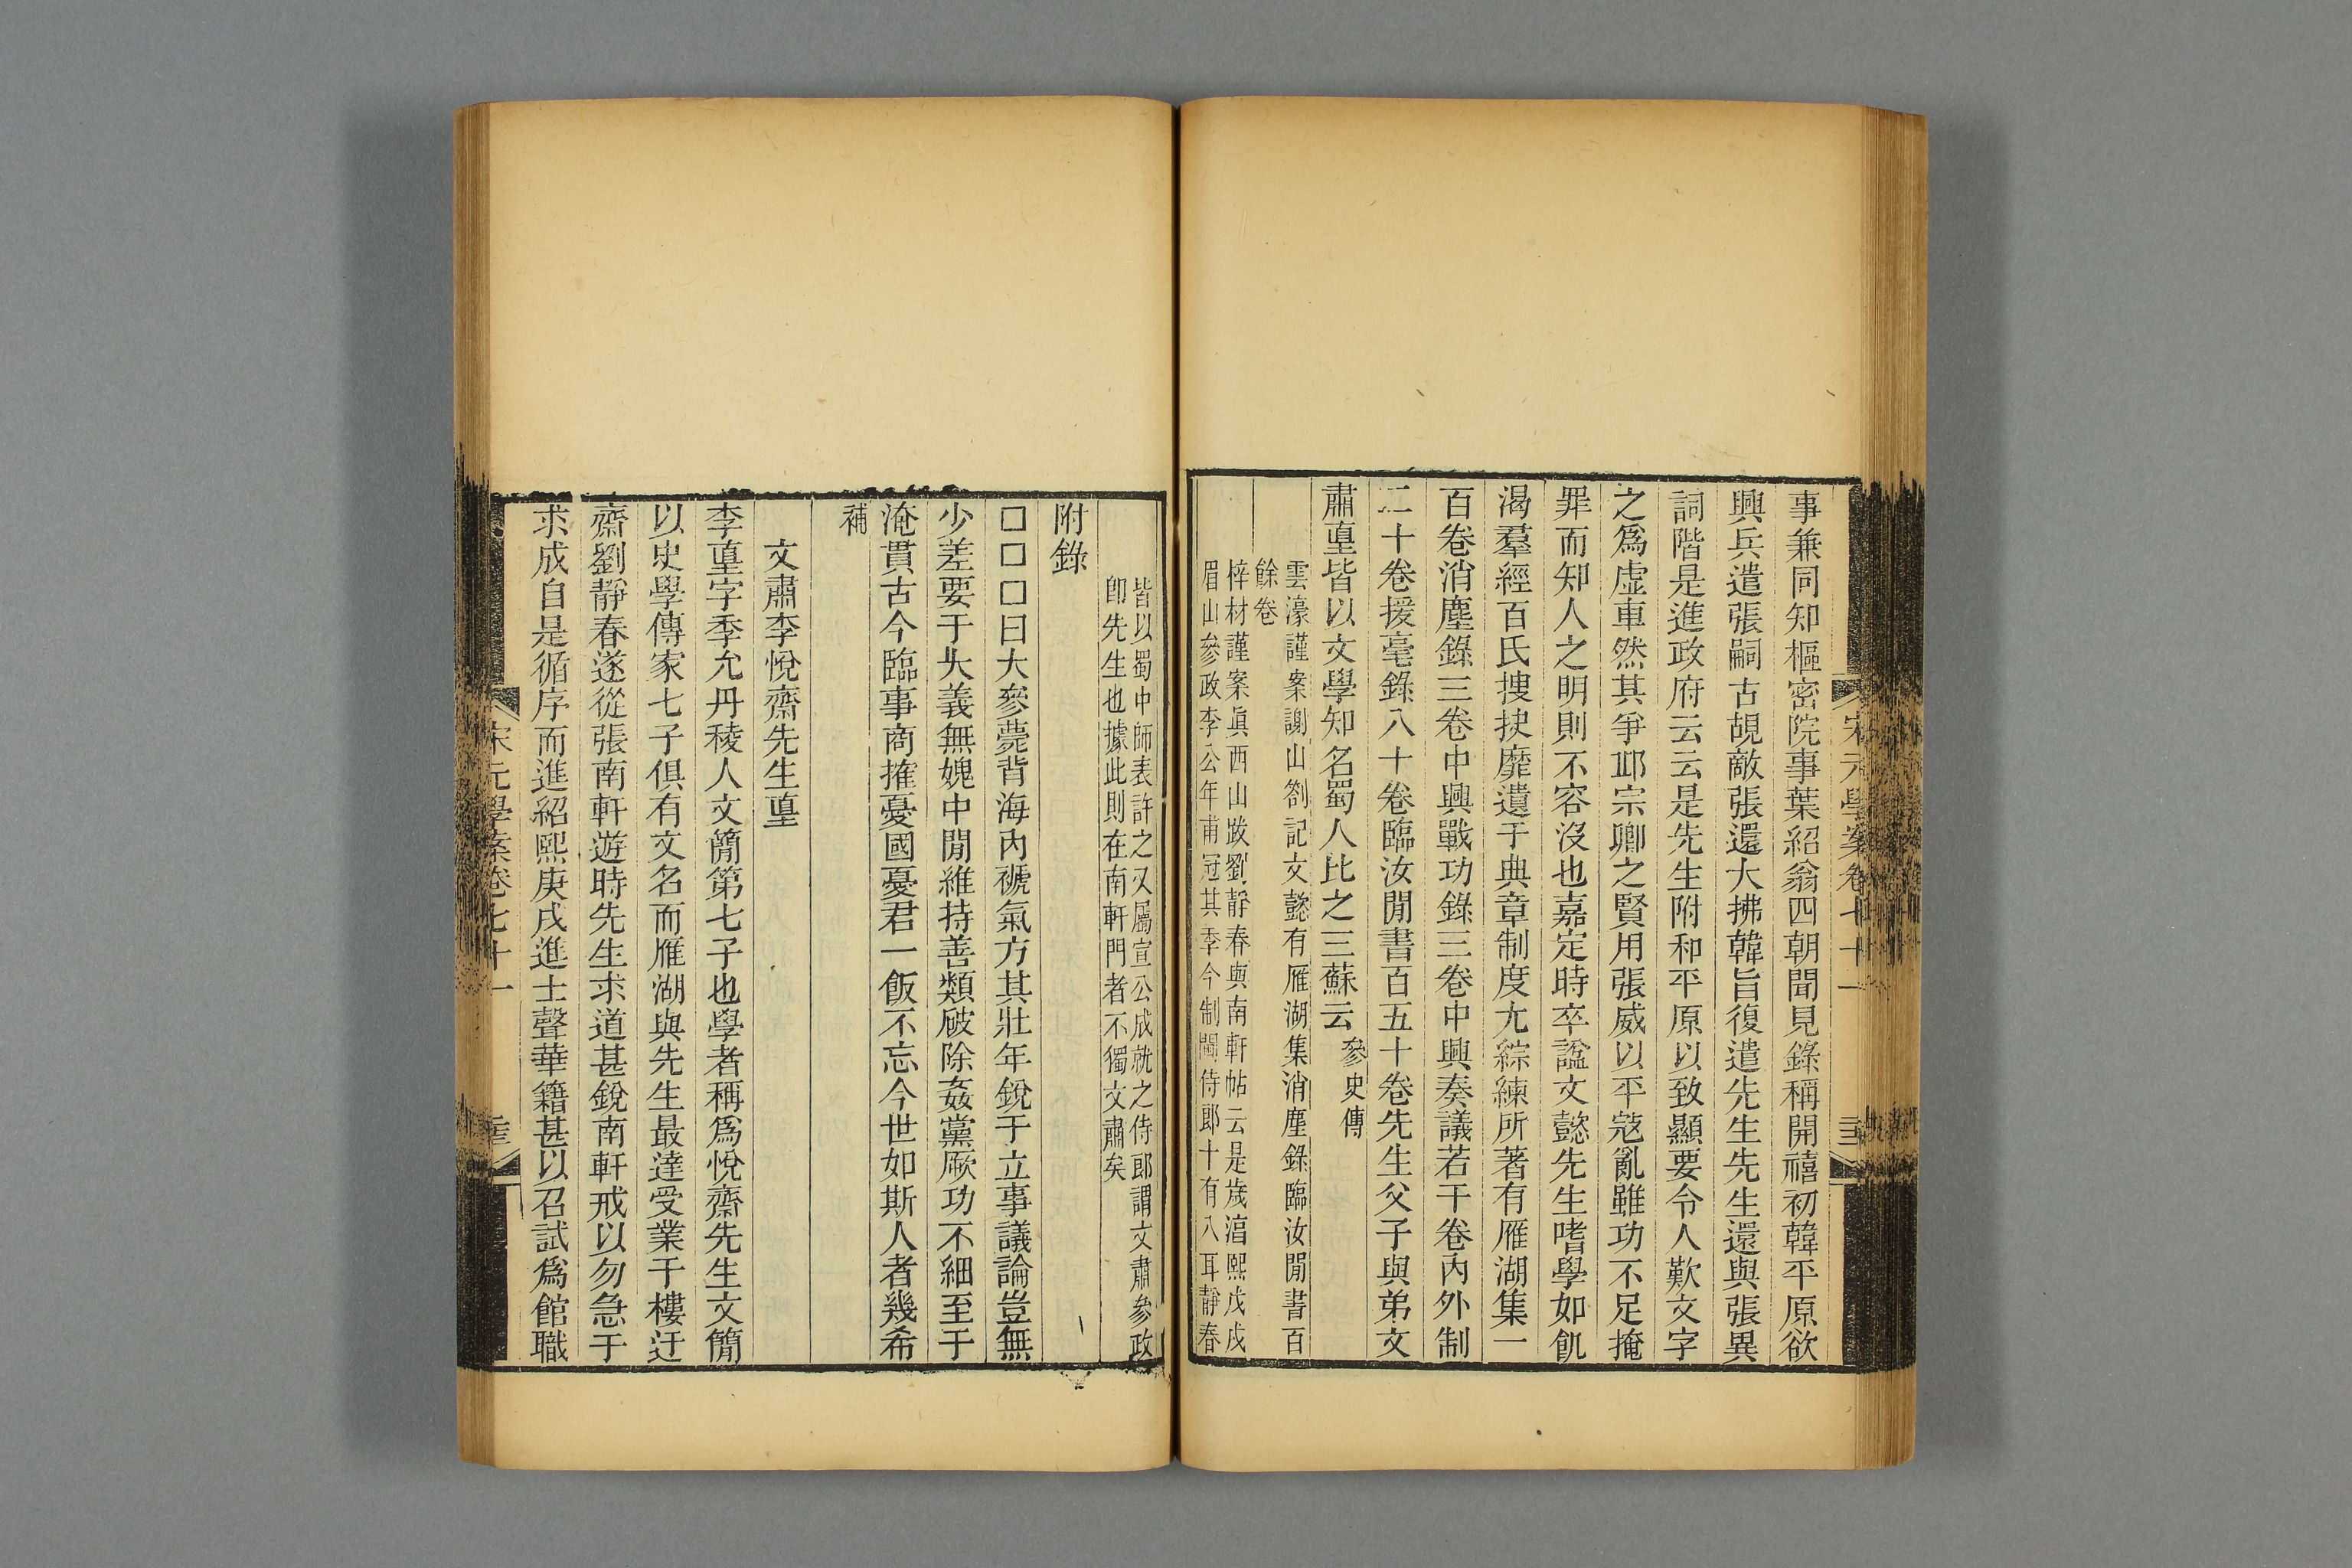 事兼同知樞密院事葉紹翁四朝聞見錄稱開禧初韓平原欲
興兵遣張嗣古覘敵張還大拂韓旨復遣先生先生還與張異
詞階是進政府云云是先生附和平原以致顯要令人歎文字
之爲虛車然其爭邱宗卿之賢用張威以平寇亂雖功不足掩
罪而知人之明則不容沒也嘉定時卒諡文懿先生嗜學如飢
渴羣經百氏搜抉靡遺于典章制度尢綜練所著有雁湖集一
百卷消塵錄三卷中興戰功錄三卷中興奏議若干卷內外制
二十卷援毫錄八十卷臨汝閒書百五十卷先生父子與弟文
肅𡌴皆以文學知名蜀人比之三蘇云 參史傳
雲濠謹案謝山劄記文懿有雁湖集消塵錄臨汝閒書百
餘卷
梓材謹案眞西山跋劉靜春與南軒帖云是歲湻熙戊戌
眉山參政李公年甫冠其季今制閫侍郎十有八耳靜春
宋元學案卷七十一
皆以蜀中師表許之又屬宣公成就之侍郎謂文肅參政
卽先生也據此則在南軒門者不獨文肅矣
附錄
□□□曰大參薨背海內褫氣方其壯年銳于立事議論豈無
少差要于大義無媿中閒維持善類敗除姦黨厥功不細至于
淹貫古今臨事商搉憂國憂君一飯不忘今世如斯人者幾希
補
文肅李悅齋先生𡌴
李𡌴字季允丹稜人文簡第七子也學者稱爲悅齋先生文簡
以史學傳家七子俱有文名而雁湖與先生最達受業于樓迂
齋劉靜春遂從張南軒遊時先生求道甚銳南軒戒以勿急于
求成自是循序而進紹熙庚戌進士聲華籍甚以召試爲館職
宋元學案卷七十一